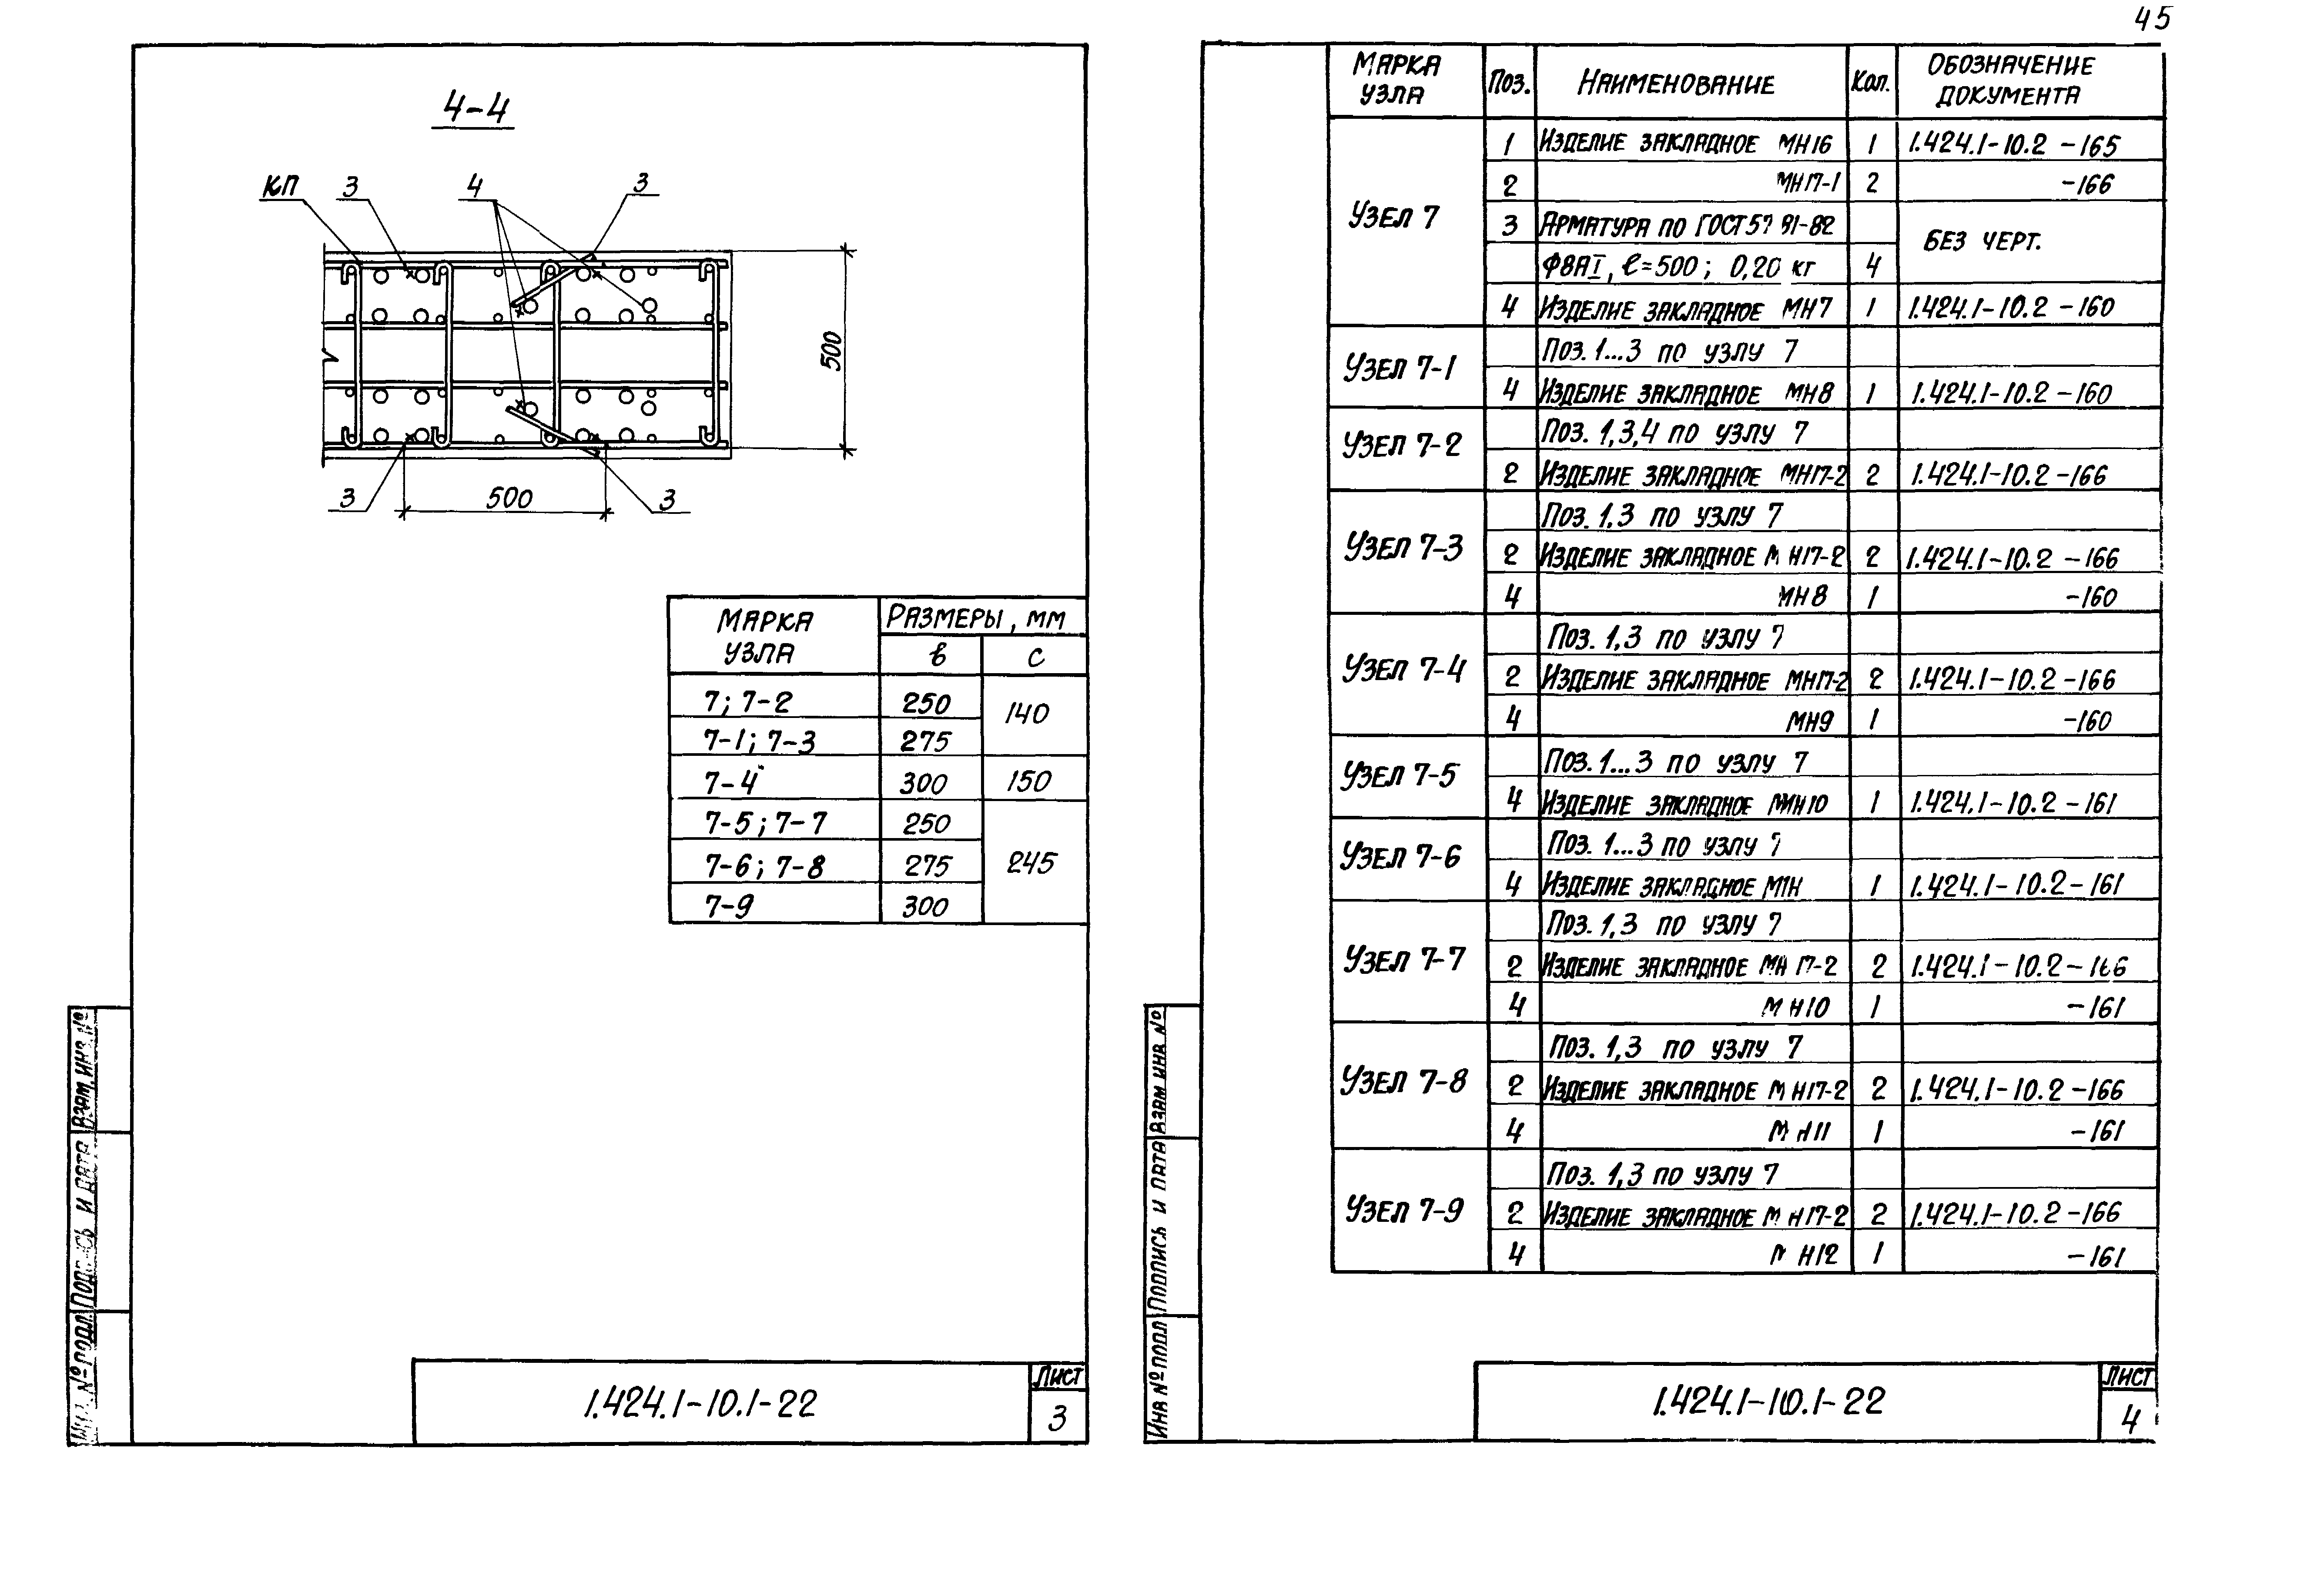 45
4-4
КП 3 4 3
500
3 500 3
МАРКА УЗЛА РАЗМЕРЫ, ММ
в с
7; 7-2 250 140
7-1; 7-3 275
7-4 300 150
7-5; 7-7 250 245
7-6; 7-8 275
7-9 300
ВЗАМ. ИНВ. №
ПОДПИСЬ И ДАТА
№ ПОДЛ.
1.424.1-10.1-22
ЛИСТ
3
МАРКА УЗЛА ПОЗ. НАИМЕНОВАНИЕ КОЛ. ОБОЗНАЧЕНИЕ ДОКУМЕНТА
УЗЕЛ 7 1 ИЗДЕЛИЕ ЗАКЛАДНОЕ МН16 1 1.424.1-10.2 -165
2 МН17-1 2 -166
3 АРМАТУРА ПО ГОСТ 5781-82 БЕЗ ЧЕРТ.
Ф8АI, ℓ=500; 0,20 кг 4
4 ИЗДЕЛИЕ ЗАКЛАДНОЕ МН7 1 1.424.1-10.2 -160
УЗЕЛ 7-1 ПОЗ. 1...3 ПО УЗЛУ 7
4 ИЗДЕЛИЕ ЗАКЛАДНОЕ МН8 1 1.424.1-10.2 -160
УЗЕЛ 7-2 ПОЗ. 1,3,4 ПО УЗЛУ 7
2 ИЗДЕЛИЕ ЗАКЛАДНОЕ МН17-2 2 1.424.1-10.2 -166
УЗЕЛ 7-3 ПОЗ. 1,3 ПО УЗЛУ 7
2 ИЗДЕЛИЕ ЗАКЛАДНОЕ МН17-2 2 1.424.1-10.2 -166
4 МН8 1 -160
УЗЕЛ 7-4 ПОЗ. 1,3 ПО УЗЛУ 7
2 ИЗДЕЛИЕ ЗАКЛАДНОЕ МН17-2 2 1.424.1-10.2 -166
4 МН9 1 -160
УЗЕЛ 7-5 ПОЗ. 1...3 ПО УЗЛУ 7
4 ИЗДЕЛИЕ ЗАКЛАДНОЕ МН10 1 1.424.1-10.2 -161
УЗЕЛ 7-6 ПОЗ. 1...3 ПО УЗЛУ 7
4 ИЗДЕЛИЕ ЗАКЛАДНОЕ 1 1.424.1-10.2-161
УЗЕЛ 7-7 ПОЗ. 1,3 ПО УЗЛУ 7
2 ИЗДЕЛИЕ ЗАКЛАДНОЕ МН17-2 2 1.424.1-10.2-166
4 МН10 1 -161
УЗЕЛ 7-8 ПОЗ. 1,3 ПО УЗЛУ 7
2 ИЗДЕЛИЕ ЗАКЛАДНОЕ МН17-2 2 1.424.1-10.2 -166
4 МН11 1 -161
УЗЕЛ 7-9 ПОЗ. 1,3 ПО УЗЛУ 7
2 ИЗДЕЛИЕ ЗАКЛАДНОЕ МН17-2 2 1.424.1-10.2 -166
4 МН12 1 -161
ВЗАМ ИНВ №
ПОДПИСЬ И ДАТА
ИНВ № ПОДЛ
1.424.1-10.1-22
ЛИСТ
4